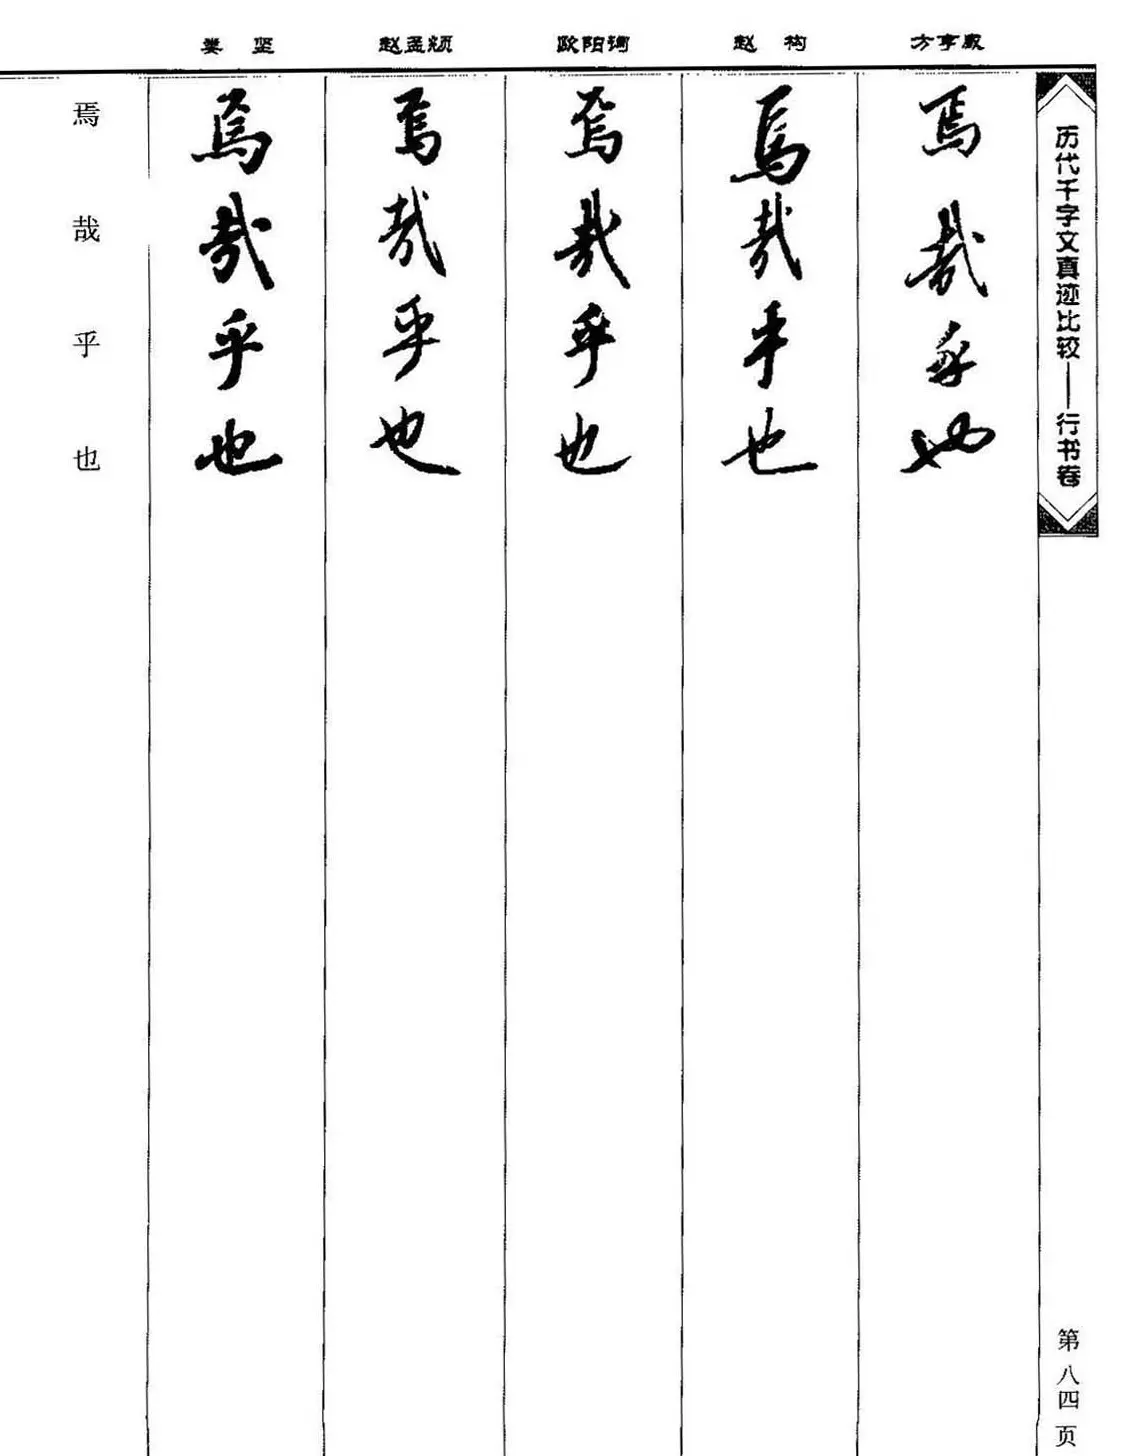 历代千字文真迹比较——行书卷
方亨咸
焉哉乎也
赵构
焉哉乎也
欧阳询
焉哉乎也
赵孟頫
焉哉乎也
娄坚
焉哉乎也
焉哉乎也
第八四页